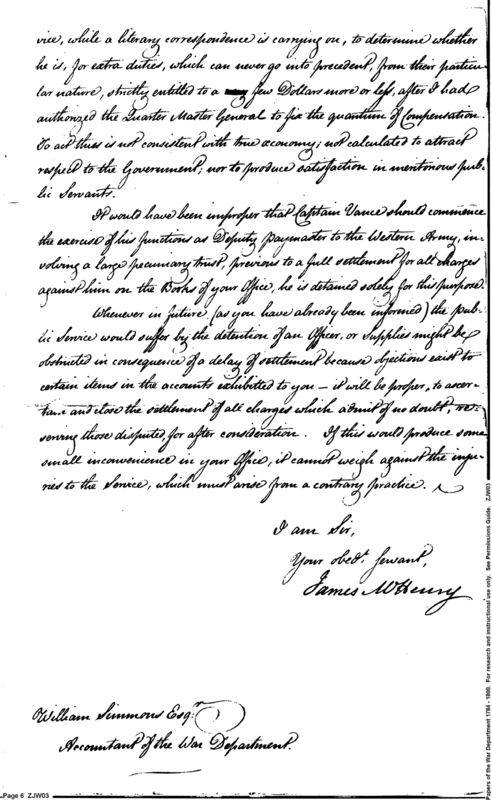 vice, while a literary correspondence is carrying on, to determine whether
he is, for extra duties, which can never go into precedent, from their particu-
lar nature, strictly entitled to a few Dollars more or less, after I had
authorized the Quarter Master General to fix the quantum of Compensation.
To act thus is not consistent with true economy; not calculated to attract
respect to the Government; nor to produce satisfaction in meritorious pub-
lic Servants.
It would have been improper that Captain Vance should commence
the exercise of his functions as Deputy paymaster to the Western Army, in-
volving a large pecuniary trust, previous to a full settlement for all charges
against him on the Books of your Office, he is detained solely for this purpose.
Whenever in future (as you have already been informed) the pub-
lic Service would suffer by the detention of an Officer, or Supplies might be
obstructed in consequence of a delay of settlement because objections exist to
certain items in the accounts exhibited to you — it will be proper, to ascer-
tain and close the settlement of all charges which admit of no doubt, re-
serving those disputed, for after consideration. If this would produce some
small inconvenience in your Office, it cannot weigh against the inju-
ries to the Service, which must arise from a contrary practice.
I am Sir,
Your obedt. Servant,
James McHenry
William Simmons Esqr.
Accountant of the War Department.
Page 6 ZJW03
Papers of the War Department 1784 - 1800. For research and instructional use only. See Permissions Guide. ZJW03